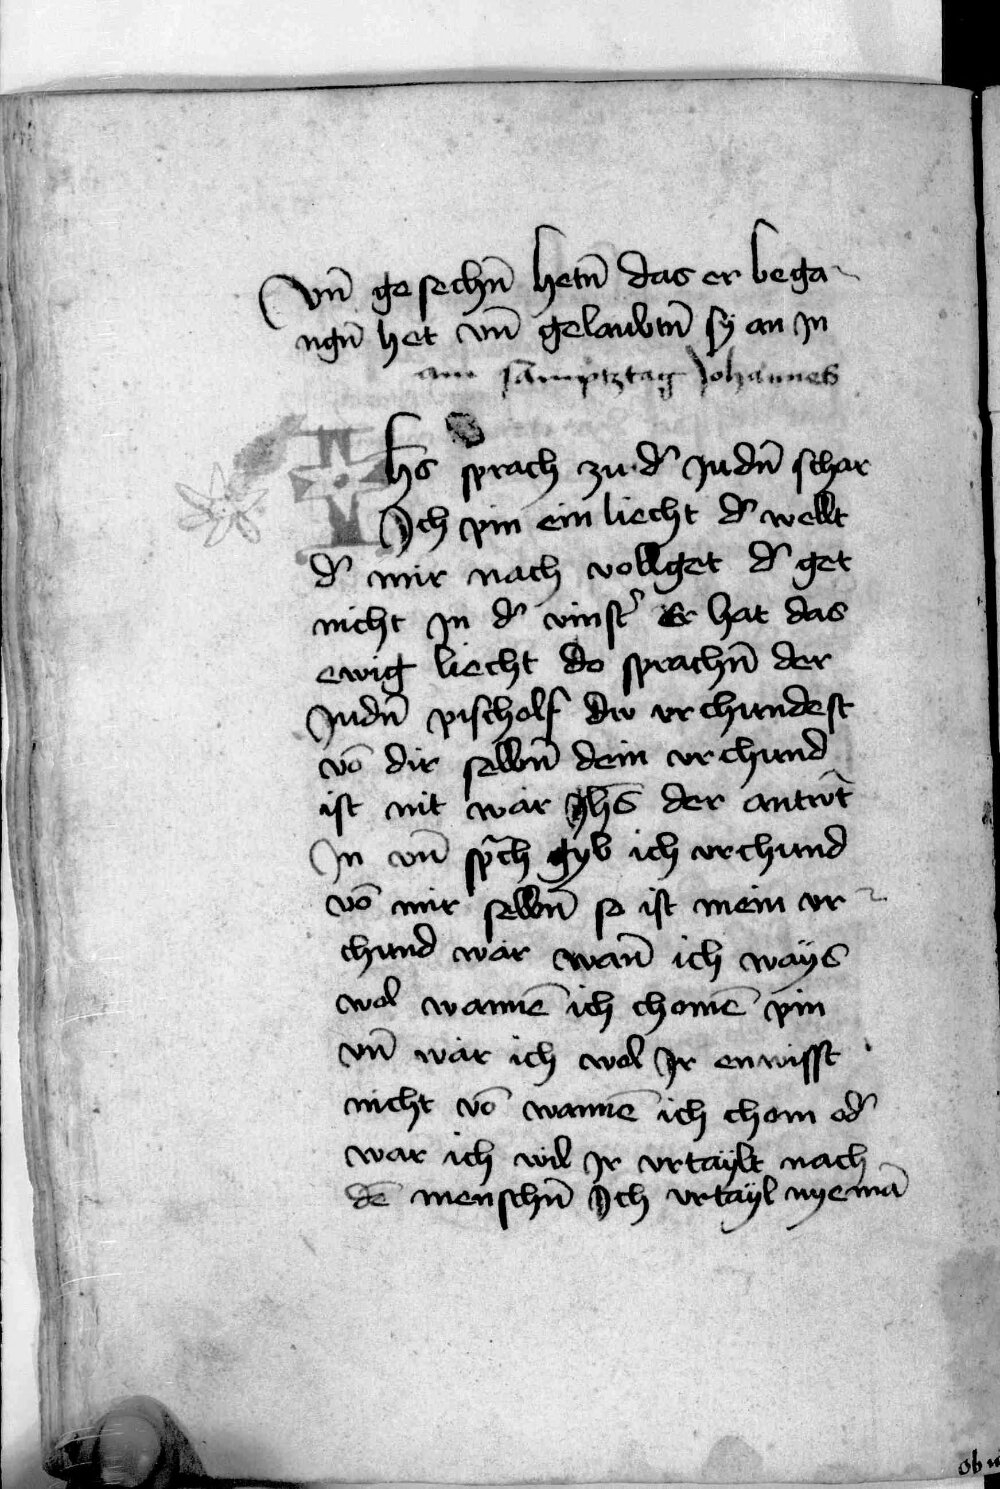 vn̄ gesechn̄ hetn̄ das er bega-
ngn̄ het vn̄ gelaubtn̄ sy an Jn
am samptztag Johannes
Jhs sprach zu d' Judn̄ schar
Jch pin ein liecht d' wellt
d' mir nach vollget d' get
nicht Jn d' vinst' Er hat das
ewig liecht do sprachn̄ der
Judn̄ pischolf du vrchundest
vō dir selbn̄ dein vrchund
ist nit war Jhs̄ der antwt̄
Jn vn̄ sprch gyb ich vrchund
vō mir selbn̄ so ist mein vr-
chund war wan̄ ich ways
wol wannē ich chomē pin
vn̄ war ich wol Jr enwisst
nicht vō wannē ich chom od'
war ich wil Jr vrtaylt nach
dē menschn̄ Jch vrtayl nyemā
ob